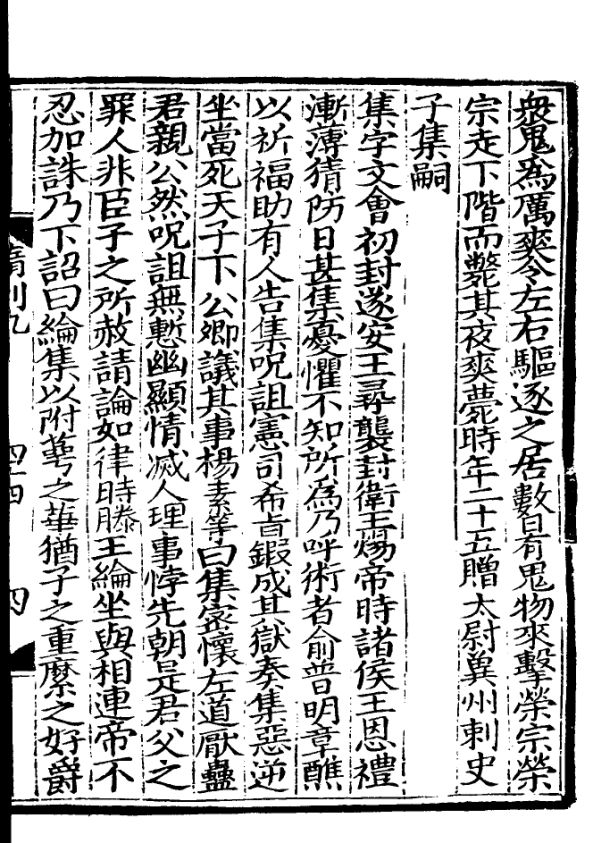 衆鬼為厲爽令左右驅逐之居數日有鬼物來擊榮宗榮
宗走下階而斃其夜爽薨時年二十五贈太尉冀州刺史
子集嗣
集字文會初封遂安王尋襲封衛王煬帝時諸侯王恩禮
漸薄猜防日甚集憂懼不知所爲乃呼術者俞普明章醮
以祈福助有人告集呪詛憲司希旨鍛成其獄奏集惡逆
坐當死天子下公卿議其事楊素等曰集密懷左道厭蠱
君親公然呪詛無慙幽顯情滅人理事悖先朝是君父之
罪人非臣子之所赦請論如律時滕王綸坐與相連帝不
忍加誅乃下詔曰綸集以附萼之華猶子之重縻之好爵
隋列九
四四
四